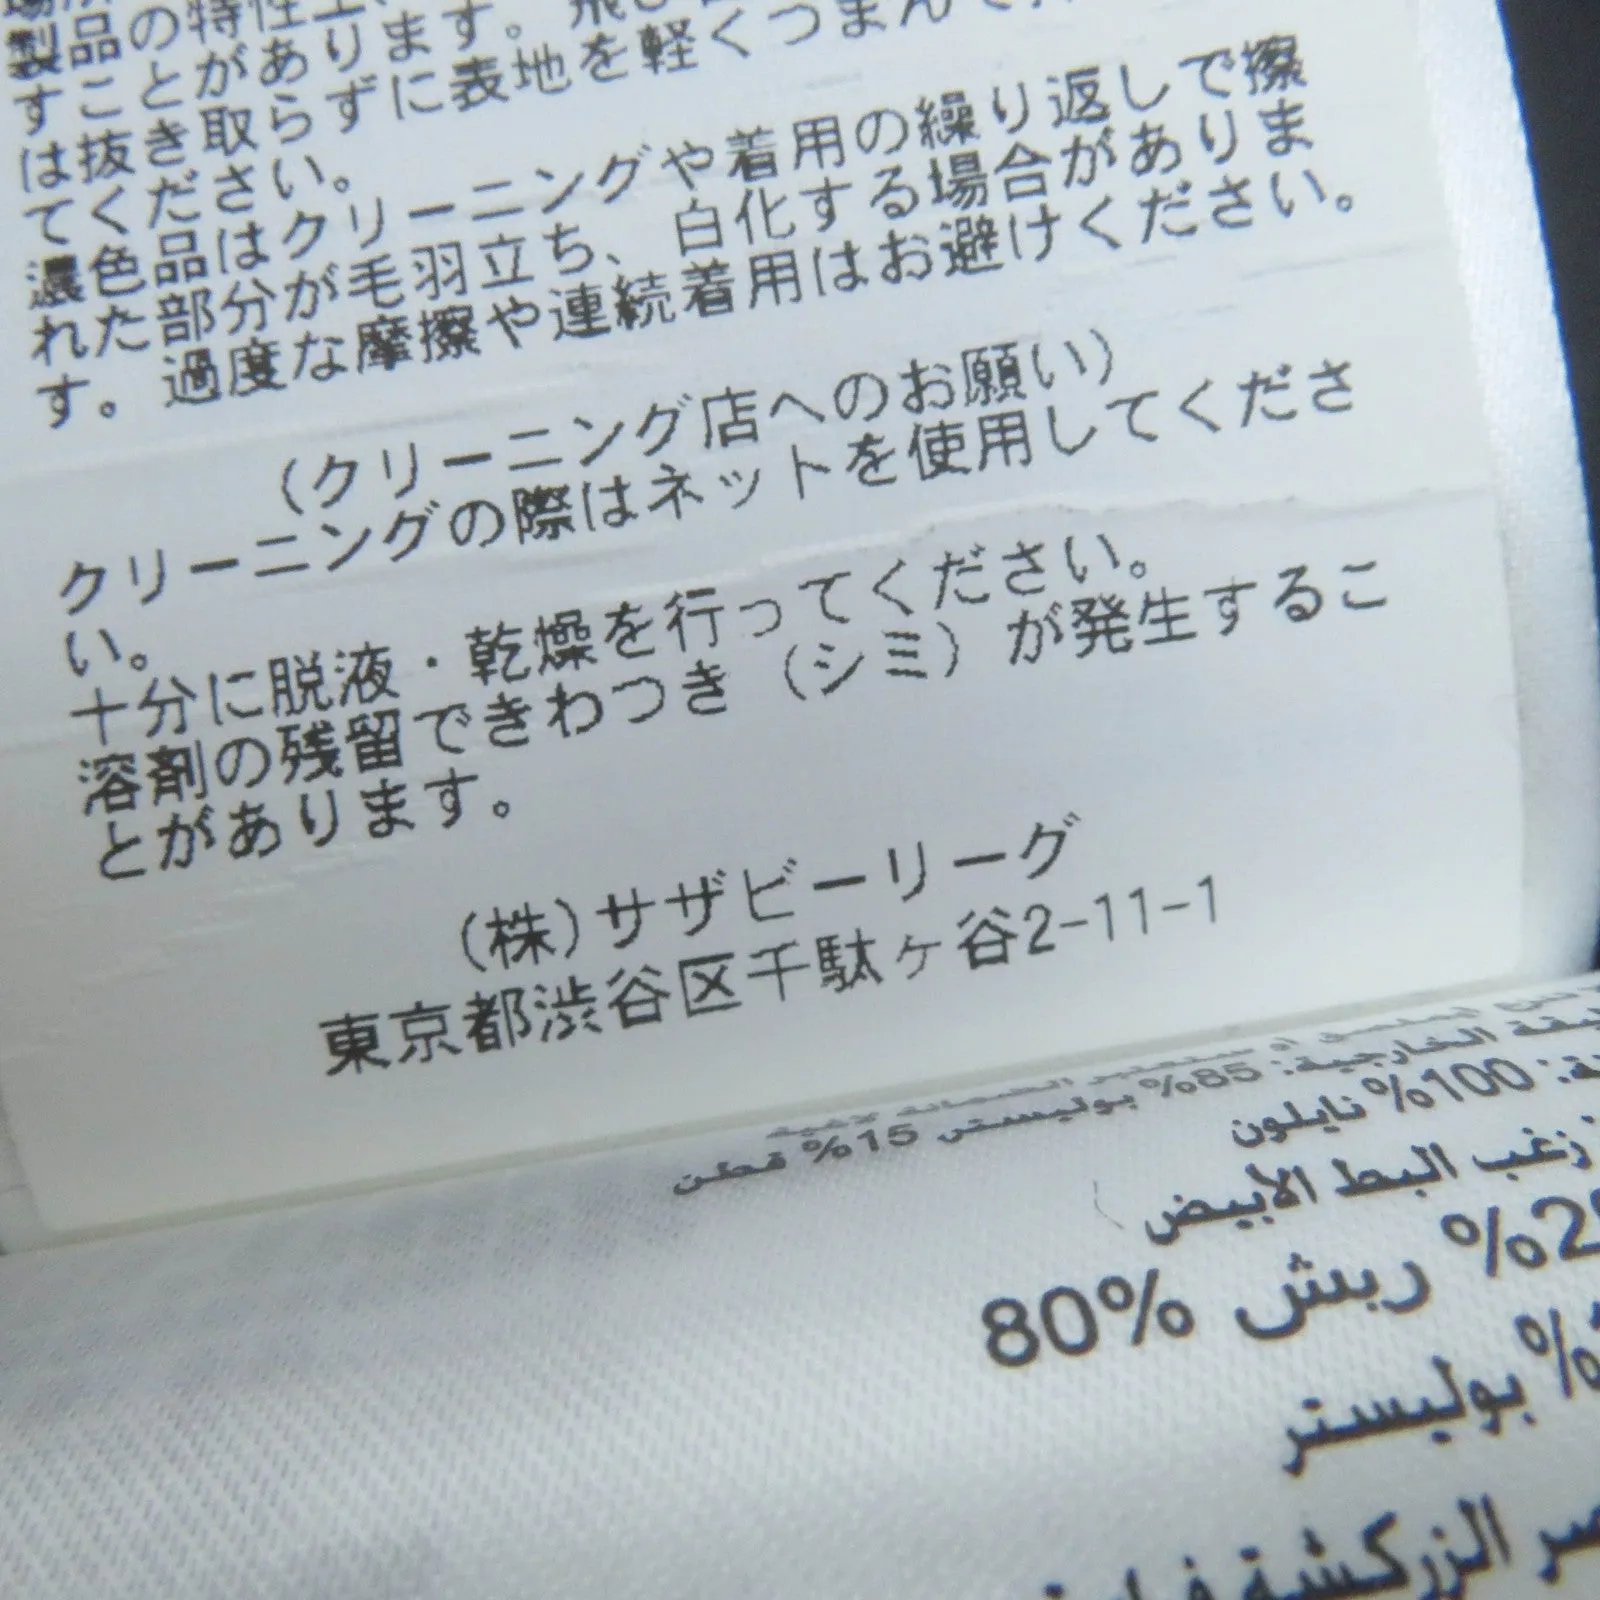 製品の特性上、
すことがあります。飛び
は抜き取らずに表地を軽くつまんで、
てください。
濃色品はクリーニングや着用の繰り返しで擦
れた部分が毛羽立ち、白化する場合がありま
す。過度な摩擦や連続着用はお避けください。
(クリーニング店へのお願い)
クリーニングの際はネットを使用してくださ
い。
十分に脱液・乾燥を行ってください。
溶剤の残留できわつき(シミ)が発生するこ
とがあります。
(株)サザビーリーグ
東京都渋谷区千駄ヶ谷2-11-1
الخارجية: 85% بوليستر 15% قطن
100% نايلون
زغب البط الأبيض
80% ريش
بوليستر
الزركشة